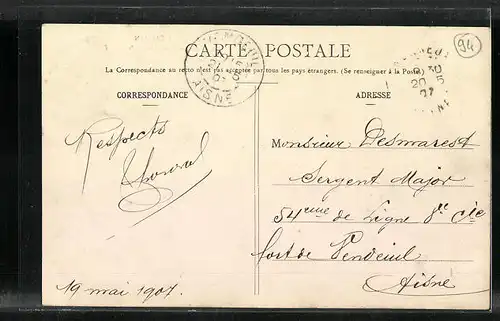 CARTE POSTALE
La Correspondance au recto n'est pas acceptée par tous les pays étrangers. (Se renseigner à la Poste)
CORRESPONDANCE
ADRESSE
94
AISNE
Respects
19 mai 1907.
Monsieur Desmarest
Sergent Major
54eme de Ligne 8e Cie
fort de Vendeuil
Aisne